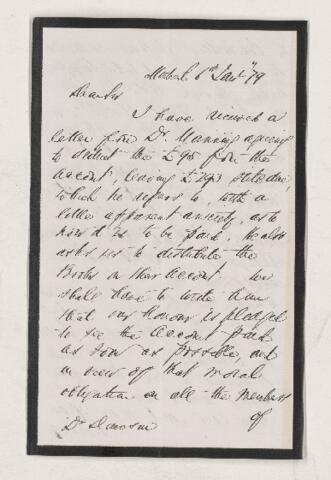 Montreal 6th Jany 79
Dear Sir
I have received a
letter from Dr. Manning agreeing
to deduct the £95 from the
account, leaving £293 still due,
which he refers to, with a
little apparent anxiety, as to
how it is to be paid, he also
asks us to distribute the
Books on their account. We
shall have to write him
that our honour is pledged
to see the account paid
as soon as possible, and
in view of that moral
obligation on all the members
of
Dr Dawson